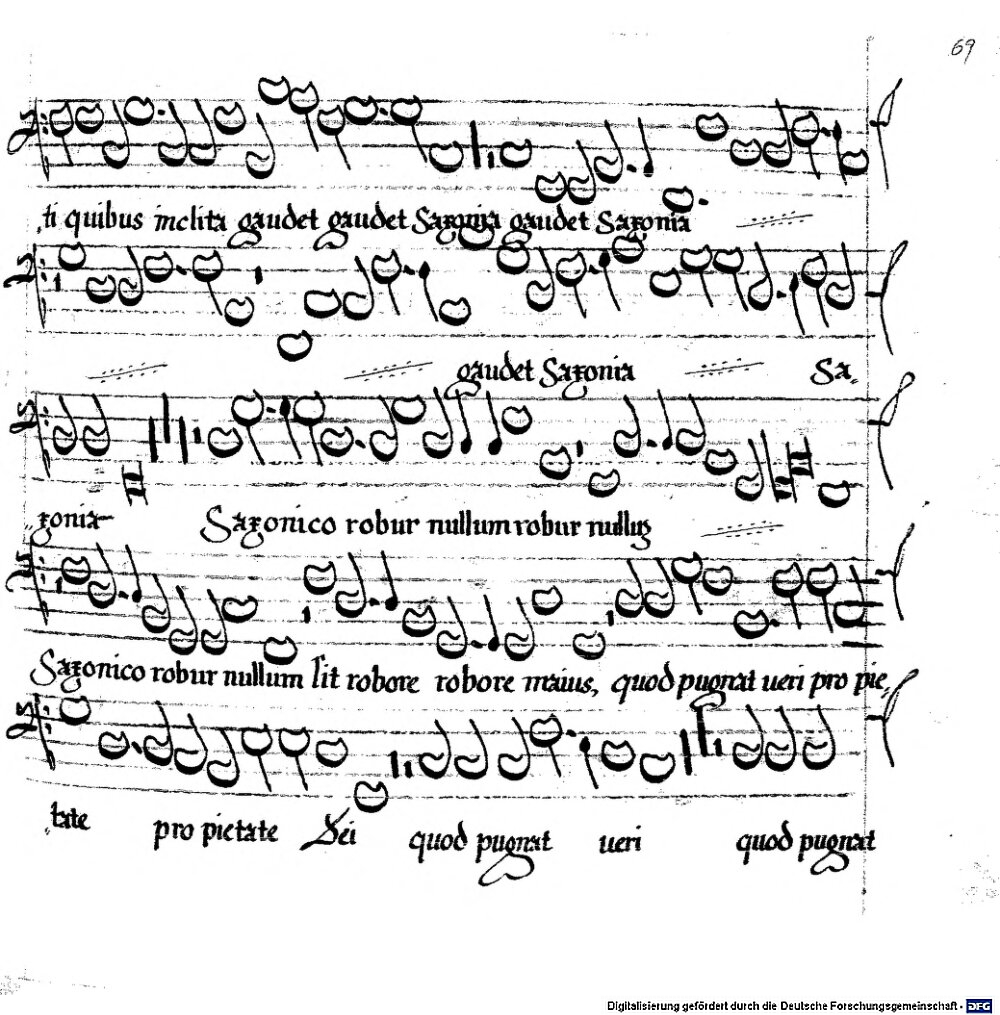 69
ti quibus inclita gaudet gaudet Saxonia gaudet Saxonia
gaudet Saxonia Sa,
xonia Saxonico robur nullum robur nullus
Saxonico robur nullum sit robore robore maius, quod pugnat ueri pro pie,
tate pro pietate Dei quod pugnat ueri quod pugnat
Digitalisierung gefördert durch die Deutsche Forschungsgemeinschaft - DFG